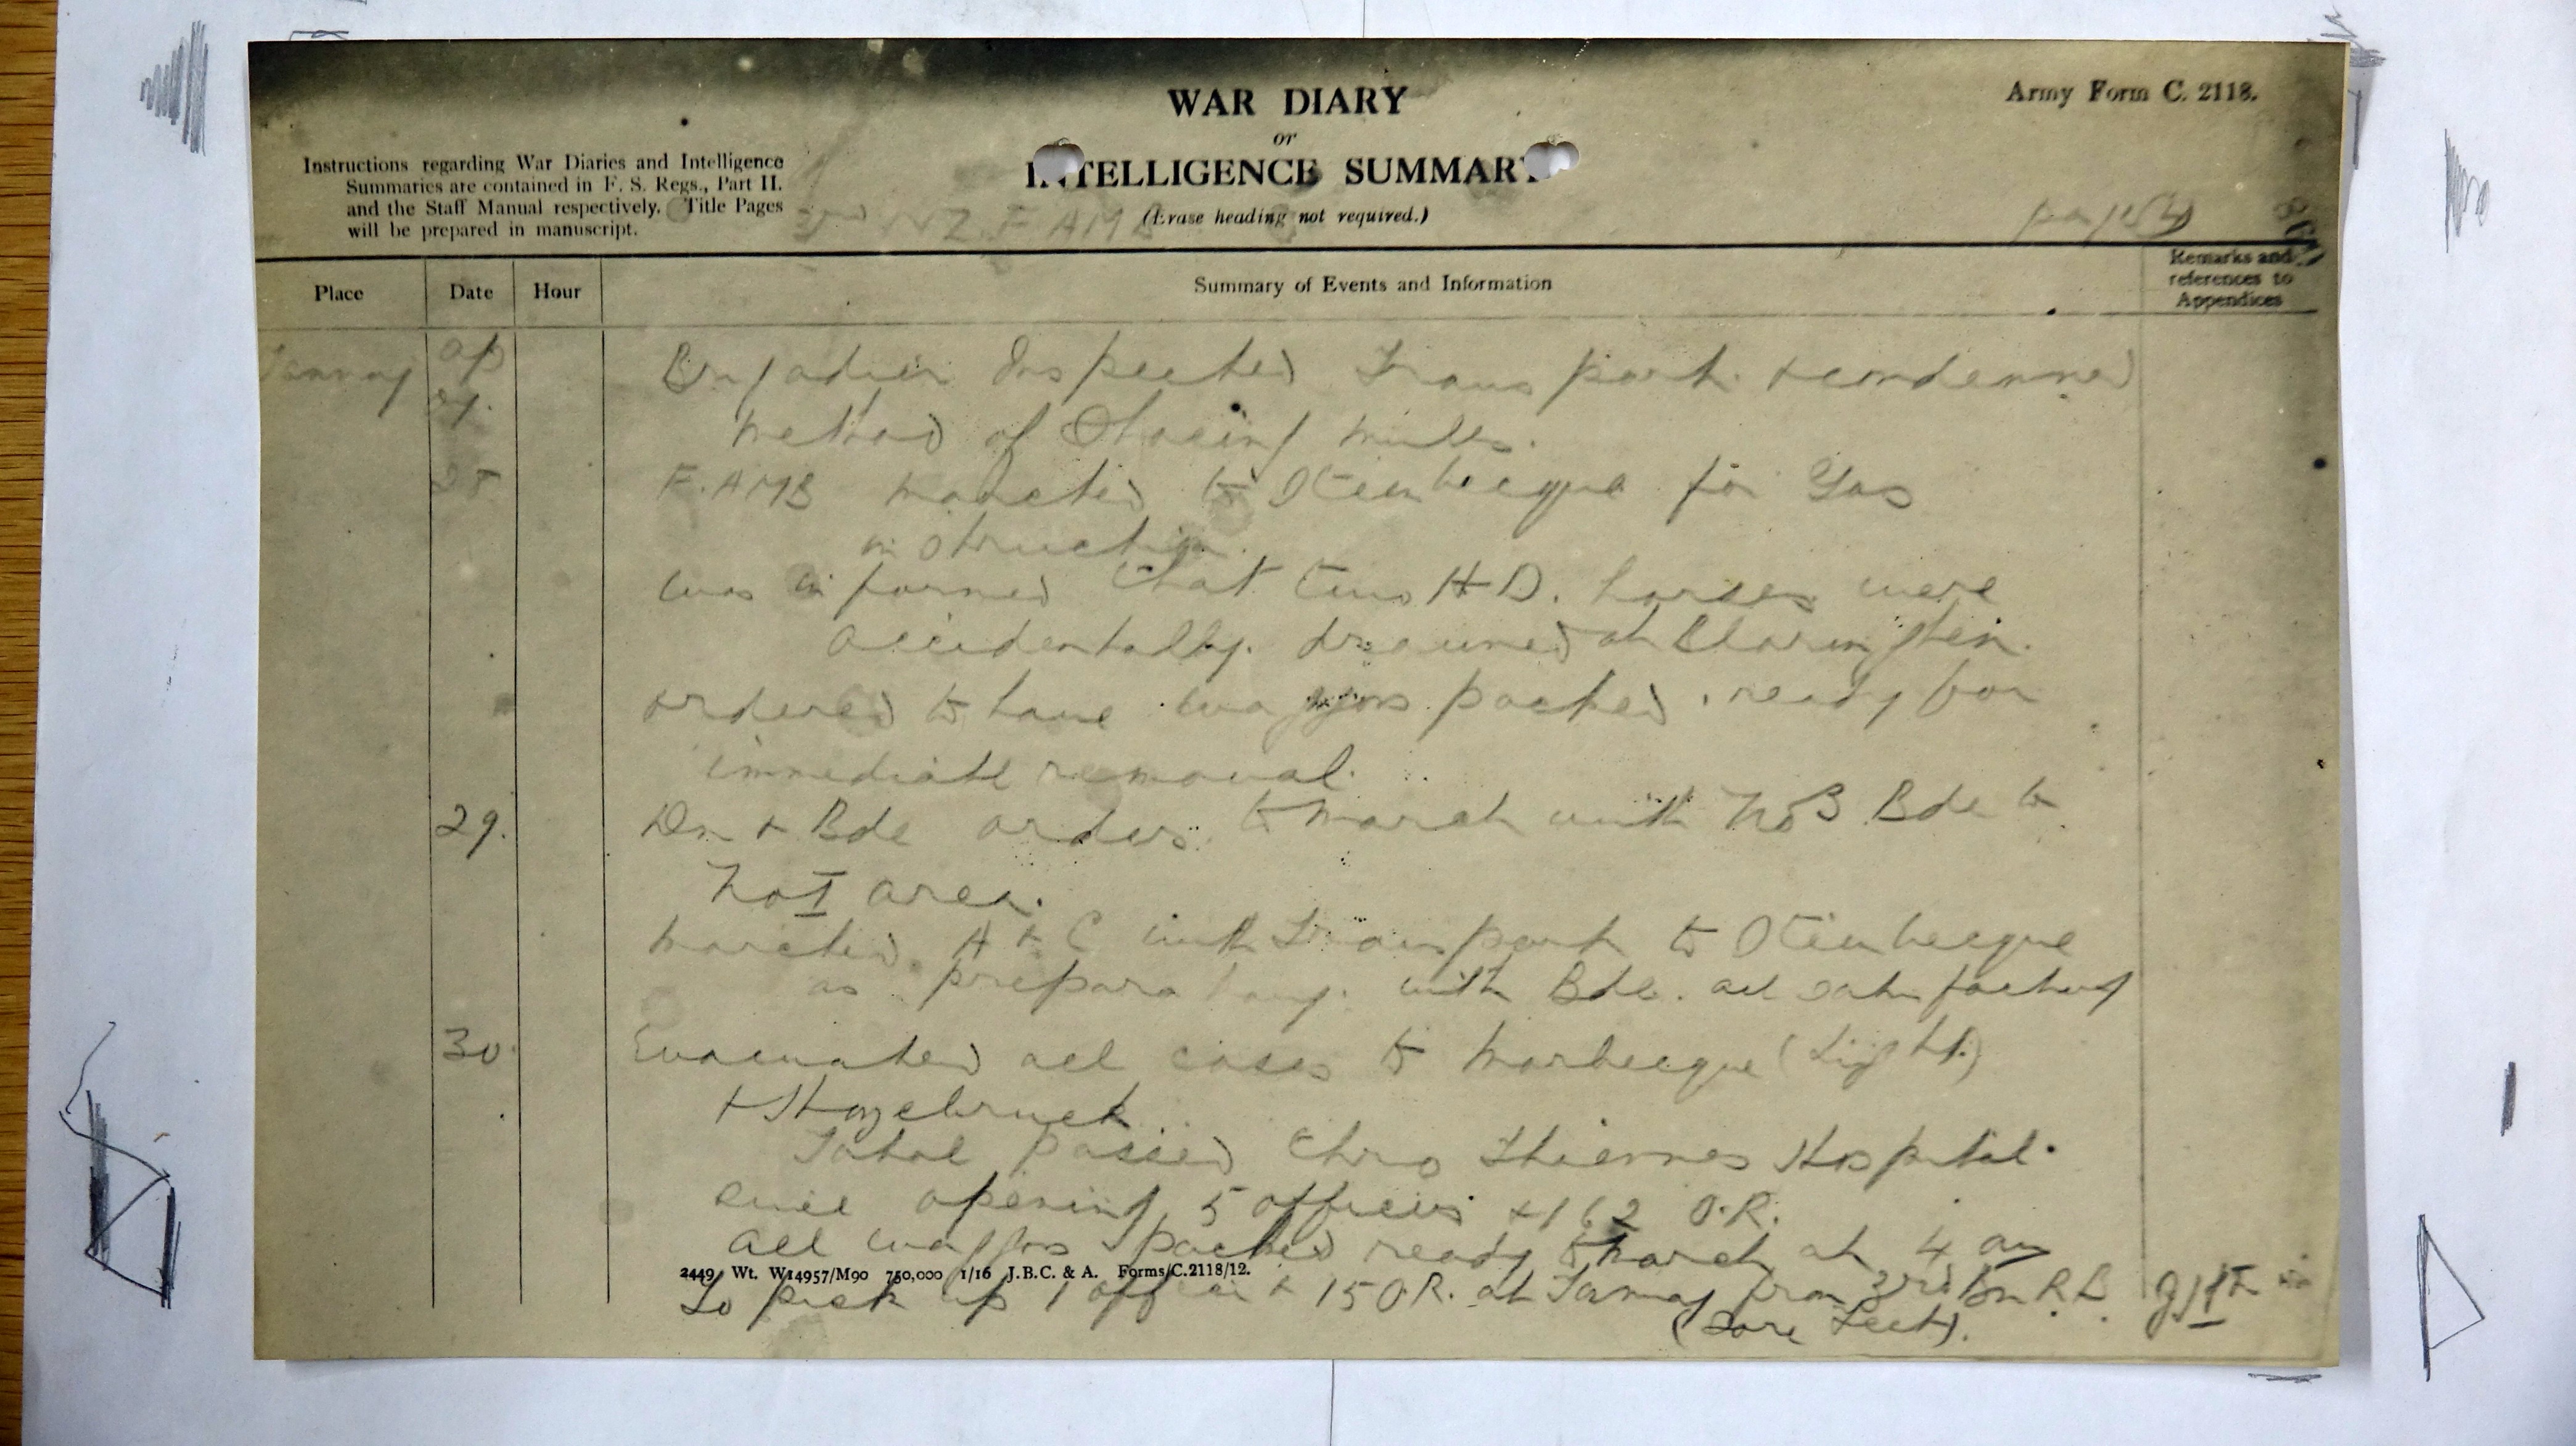 WAR DIARY
or
INTELLIGENCE SUMMARY
(Erase heading not required.)
Army Form C. 2118.
Instructions regarding War Diaries and Intelligence
Summaries are contained in F. S. Regs., Part II.
and the Staff Manual respectively. Title Pages
will be prepared in manuscript.
NZ. F AMB
Place Date Hour Summary of Events and Information Remarks and references to Appendices
Tannay ap Brigadier Inspected Transport. + condemned
method of Shoeing mules.
F. AMB marched to Steenbecque for Gas
instruction.
was informed that two H D. horses were
accidentally. drowned at
ordered to have waggons packed ready for
immediate removal.
29. Dn + Bde orders to march with No 3 Bde to
No I area.
marched A + C with Transport to Steenbecque
as preparatory. with Bde. all satisfactory
30. Evacuated all cases to Morbecque (Light.)
+ Hazebruck
Total passed thro Thiennes Hospital.
since opening 5 officers + 162 O.R.
all waggons packed ready to march at 4 am
2449 Wt. W14957/M90 750,000 1/16 J.B.C. & A. Forms/C.2118/12.
To pick up 1 officer + 15 O.R. at Tannay from 3rd Bn R B
(Sore Feet).